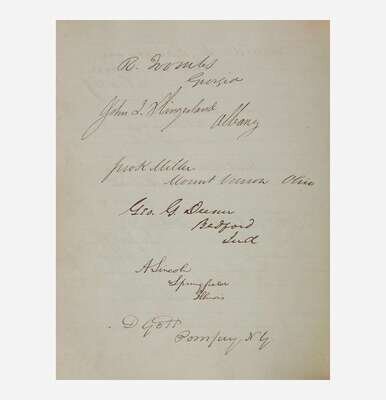 R. Toombs
Georgia
John I. Slingerland
Albany
Jno K Miller
Mount Vernon Ohio
Geo. G. Dunn
Bedford
Ind
A. Lincoln
Springfield
Illinois
D Gott
Pompey N.Y.